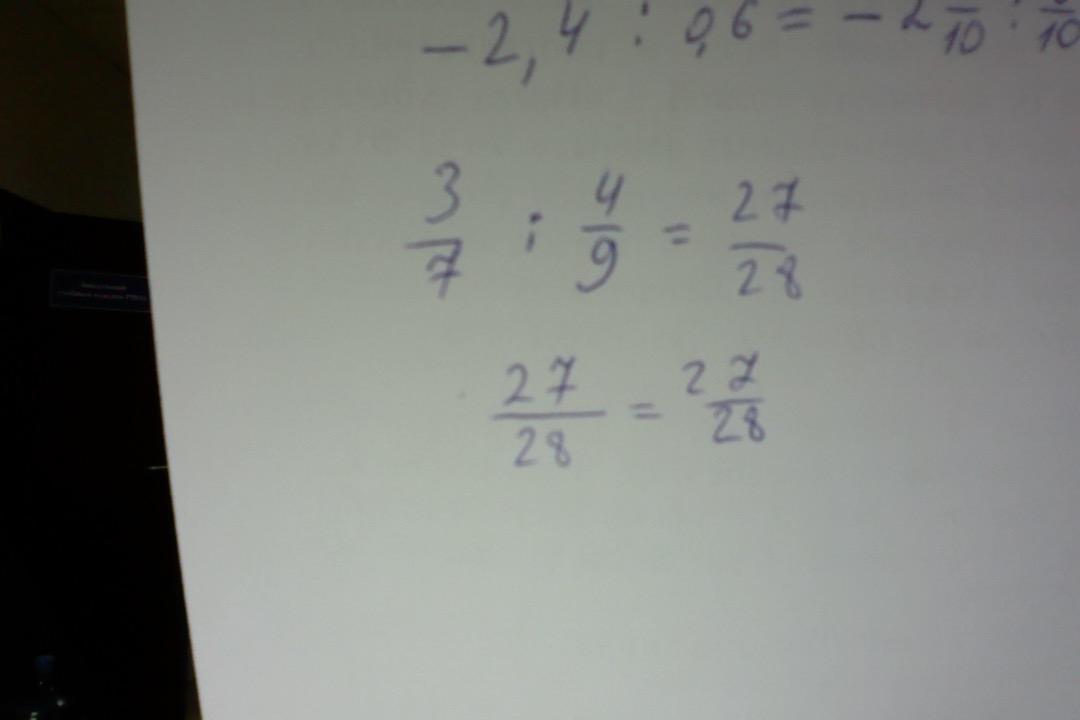 -2,4 : 0,6 = -2 /10 : /10
3/7 : 4/9 = 27/28
27/28 = 27/28